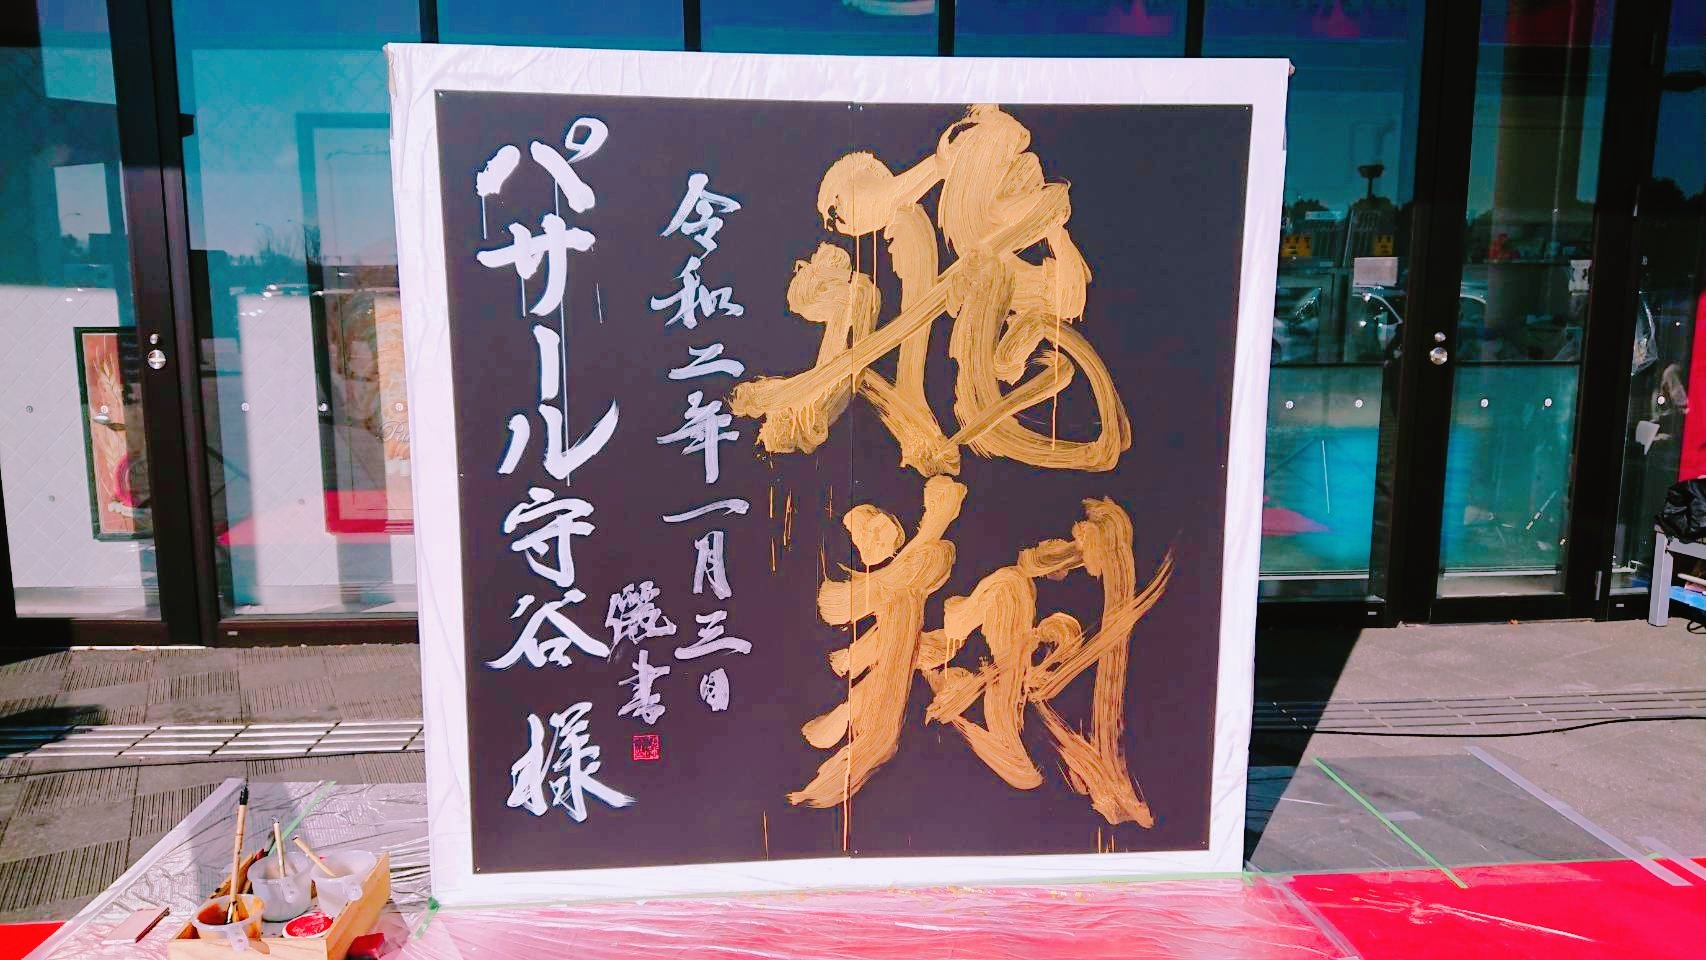 飛翔
令和二年一月三日
儷書
パサール守谷 様